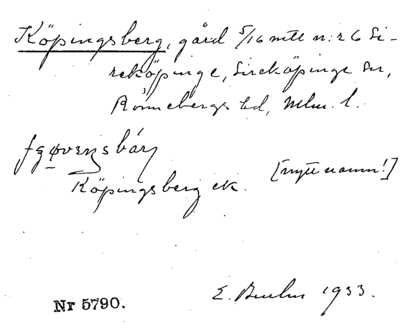 Köpingsberg, gård 5/16 mtl n:r 6 Si-
reköpinge, Sireköpinge sn,
Rönnebergs hd, Mlm. l.
Köpingsberg ek. [nytt namn!]
E. 1933.
Nr 5790.